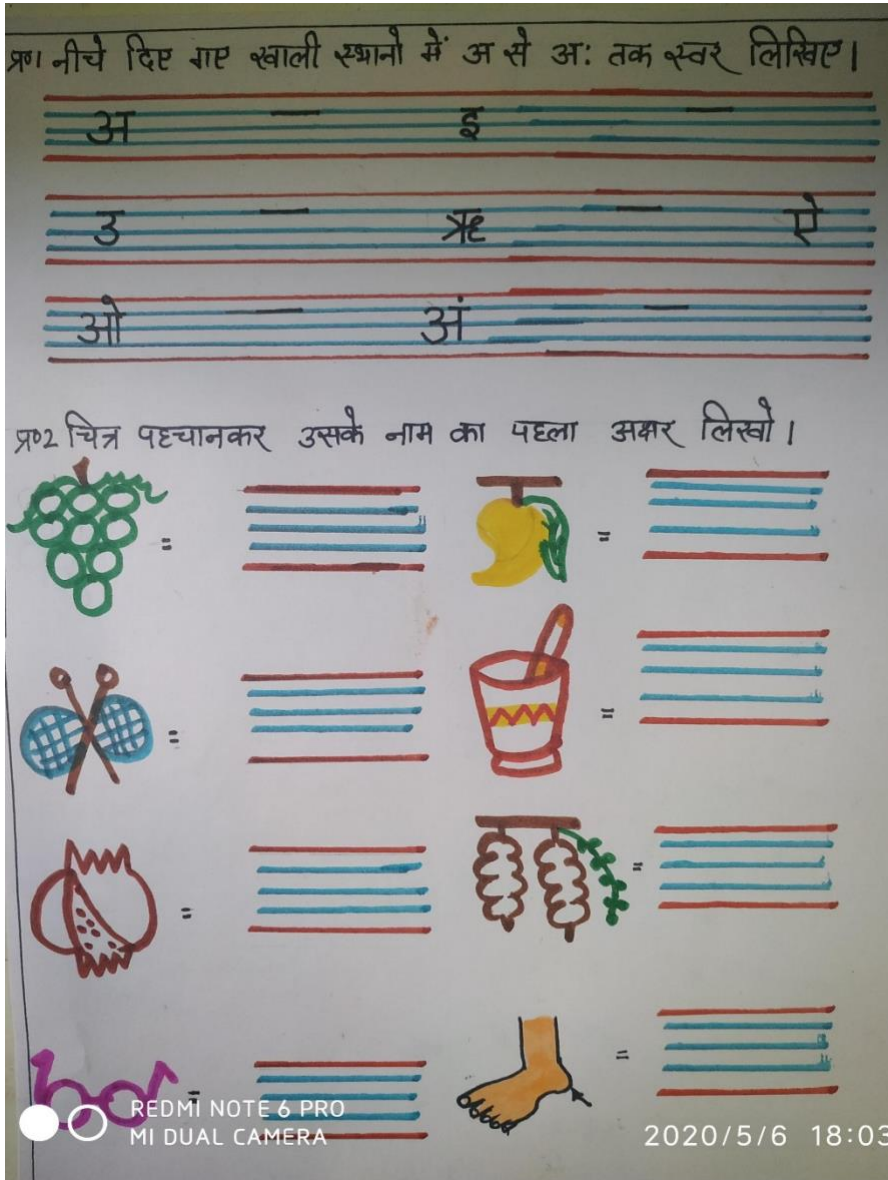 प्र०1 नीचे दिए गए खाली स्थानो में अ से अः तक स्वर लिखिए।
अ — इ —
उ — ऋ — ऐ
ओ — अं —
प्र०2 चित्र पहचानकर उसके नाम का पहला अक्षर लिखो।
= =
= =
= =
= =
REDMI NOTE 6 PRO
MI DUAL CAMERA
2020/5/6 18:03